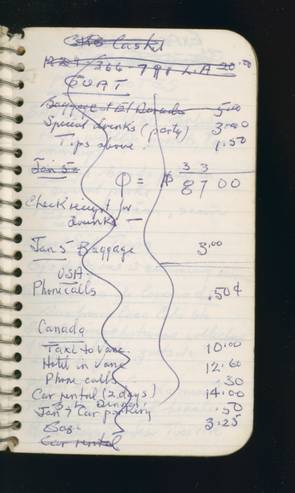 Cash
GUAT
Baggage 5.00
Special drinks (party) 3.00
Tips 1.50
Jan 5
33
Q = $ 87 00
Check receipt for
drinks —
Jan 5 Baggage 3.00
USA
Phone calls .50¢
Canada
Taxi to Vanc. 10.00
Hotel in Vanc 12.60
Phone calls .30
Car rental (2 days) 14.00
Jan 7 Car parking .50
Gas. 3.25
Car rental